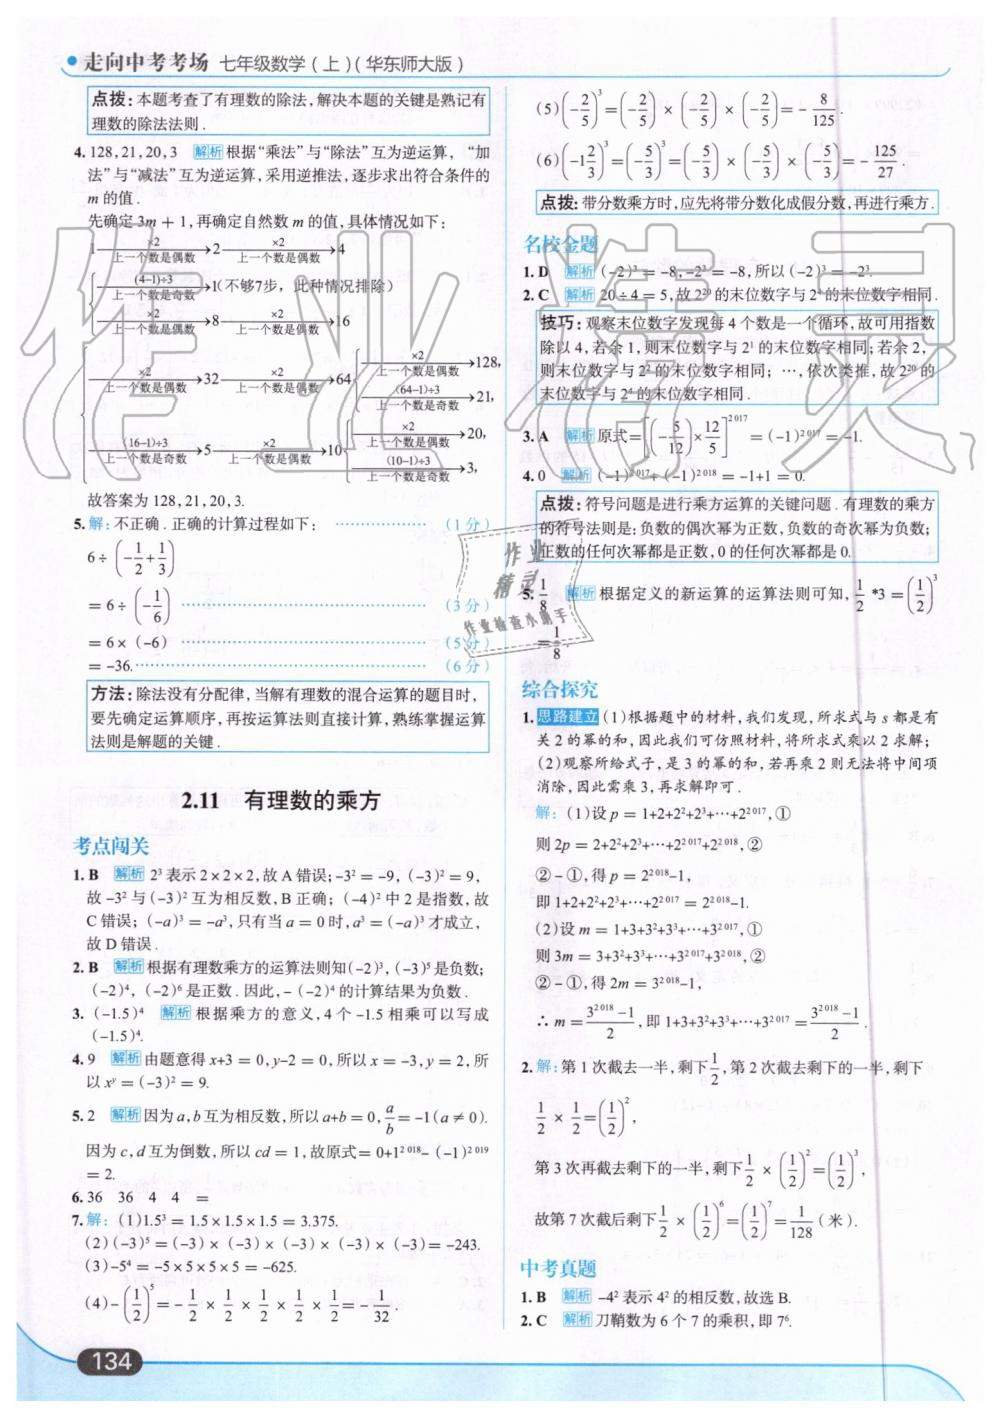 走向中考考场 七年级数学(上)(华东师大版)
点拨:本题考查了有理数的除法,解决本题的关键是熟记有
理数的除法法则.
4. 128,21,20,3 解析 根据“乘法”与“除法”互为逆运算,“加
法”与“减法”互为逆运算,采用逆推法,逐步求出符合条件的
m的值.
先确定3m+1,再确定自然数m的值,具体情况如下:
1 —×2 / 上一个数是偶数→ 2 —×2 / 上一个数是偶数→ 4
(4-1)÷3 / 上一个数是奇数→ 1(不够7步,此种情况排除)
×2 / 上一个数是偶数→ 8 —×2 / 上一个数是偶数→ 16
×2 / 上一个数是偶数→ 32 —×2 / 上一个数是偶数→ 64
×2 / 上一个数是偶数→ 128,
(64-1)÷3 / 上一个数是奇数→ 21,
(16-1)÷3 / 上一个数是奇数→ 5 —×2 / 上一个数是偶数→ 10
×2 / 上一个数是偶数→ 20,
(10-1)÷3 / 上一个数是奇数→ 3,
故答案为128,21,20,3.
5. 解:不正确.正确的计算过程如下: …………… (1分)
6÷(-1/2+1/3)
=6÷(-1/6) …………… (3分)
=6×(-6) …………… (5分)
=-36. …………… (6分)
方法:除法没有分配律,当解有理数的混合运算的题目时,
要先确定运算顺序,再按运算法则直接计算,熟练掌握运算
法则是解题的关键.
2.11 有理数的乘方
考点闯关
1. B 解析 2³表示2×2×2,故A错误;-3²=-9,(-3)²=9,
故-3²与(-3)²互为相反数,B正确;(-4)²中2是指数,故
C错误;(-a)³=-a³,只有当a=0时,a³=(-a)³才成立,
故D错误.
2. B 解析 根据有理数乘方的运算法则知(-2)³,(-3)⁵是负数;
(-2)⁴,(-2)⁶是正数.因此,-(-2)⁴的计算结果为负数.
3. (-1.5)⁴ 解析 根据乘方的意义,4个-1.5相乘可以写成
(-1.5)⁴.
4. 9 解析 由题意得x+3=0,y-2=0,所以x=-3,y=2,所
以xʸ=(-3)²=9.
5. 2 解析 因为a,b互为相反数,所以a+b=0,a/b=-1(a≠0).
因为c,d互为倒数,所以cd=1,故原式=0+1²⁰¹⁸-(-1)²⁰¹⁹
=2.
6. 36 36 4 4 =
7. 解:(1)1.5³=1.5×1.5×1.5=3.375.
(2)(-3)⁵=(-3)×(-3)×(-3)×(-3)×(-3)=-243.
(3)-5⁴=-5×5×5×5=-625.
(4)-(1/2)⁵=-1/2×1/2×1/2×1/2×1/2=-1/32.
134
(5)(-2/5)³=(-2/5)×(-2/5)×(-2/5)=-8/125.
(6)(-1 2/3)³=(-5/3)³=(-5/3)×(-5/3)×(-5/3)=-125/27.
点拨:带分数乘方时,应先将带分数化成假分数,再进行乘方.
名校金题
1. D 解析 (-2)³=-8,-2³=-8,所以(-2)³=-2³.
2. C 解析 20÷4=5,故2²⁰的末位数字与2⁴的末位数字相同.
技巧:观察末位数字发现每4个数是一个循环,故可用指数
除以4,若余1,则末位数字与2¹的末位数字相同;若余2,
则末位数字与2²的末位数字相同;…,依次类推,故2²⁰的
末位数字与2⁴的末位数字相同.
3. A 解析 原式=[(-5/12)×12/5]²⁰¹⁷=(-1)²⁰¹⁷=-1.
4. 0 解析 (-1)²⁰¹⁷+(-1)²⁰¹⁸=-1+1=0.
点拨:符号问题是进行乘方运算的关键问题.有理数的乘方
的符号法则是:负数的偶次幂为正数,负数的奇次幂为负数;
正数的任何次幂都是正数,0的任何次幂都是0.
5. 1/8 解析 根据定义的新运算的运算法则可知,1/2*3=(1/2)³
=1/8.
综合探究
1. 思路建立 (1)根据题中的材料,我们发现,所求式与s都是有
关2的幂的和,因此我们可仿照材料,将所求式乘以2求解;
(2)观察所给式子,是3的幂的和,若再乘2则无法将中间项
消除,因此需乘3,再求解即可.
解:(1)设p=1+2+2²+2³+…+2²⁰¹⁷,①
则2p=2+2²+2³+…+2²⁰¹⁷+2²⁰¹⁸,②
②-①,得p=2²⁰¹⁸-1,
即1+2+2²+2³+…+2²⁰¹⁷=2²⁰¹⁸-1.
(2)设m=1+3+3²+3³+…+3²⁰¹⁷,①
则3m=3+3²+3³+…+3²⁰¹⁷+3²⁰¹⁸,②
②-①,得2m=3²⁰¹⁸-1,
∴m=(3²⁰¹⁸-1)/2,即1+3+3²+3³+…+3²⁰¹⁷=(3²⁰¹⁸-1)/2.
2. 解:第1次截去一半,剩下1/2,第2次截去剩下的一半,剩下
1/2×1/2=(1/2)²,
第3次再截去剩下的一半,剩下1/2×(1/2)²=(1/2)³,
故第7次截后剩下1/2×(1/2)⁶=(1/2)⁷=1/128(米).
中考真题
1. B 解析 -4²表示4²的相反数,故选B.
2. C 解析 刀鞘数为6个7的乘积,即7⁶.
作业精灵
作业
精灵
作业检查小助手